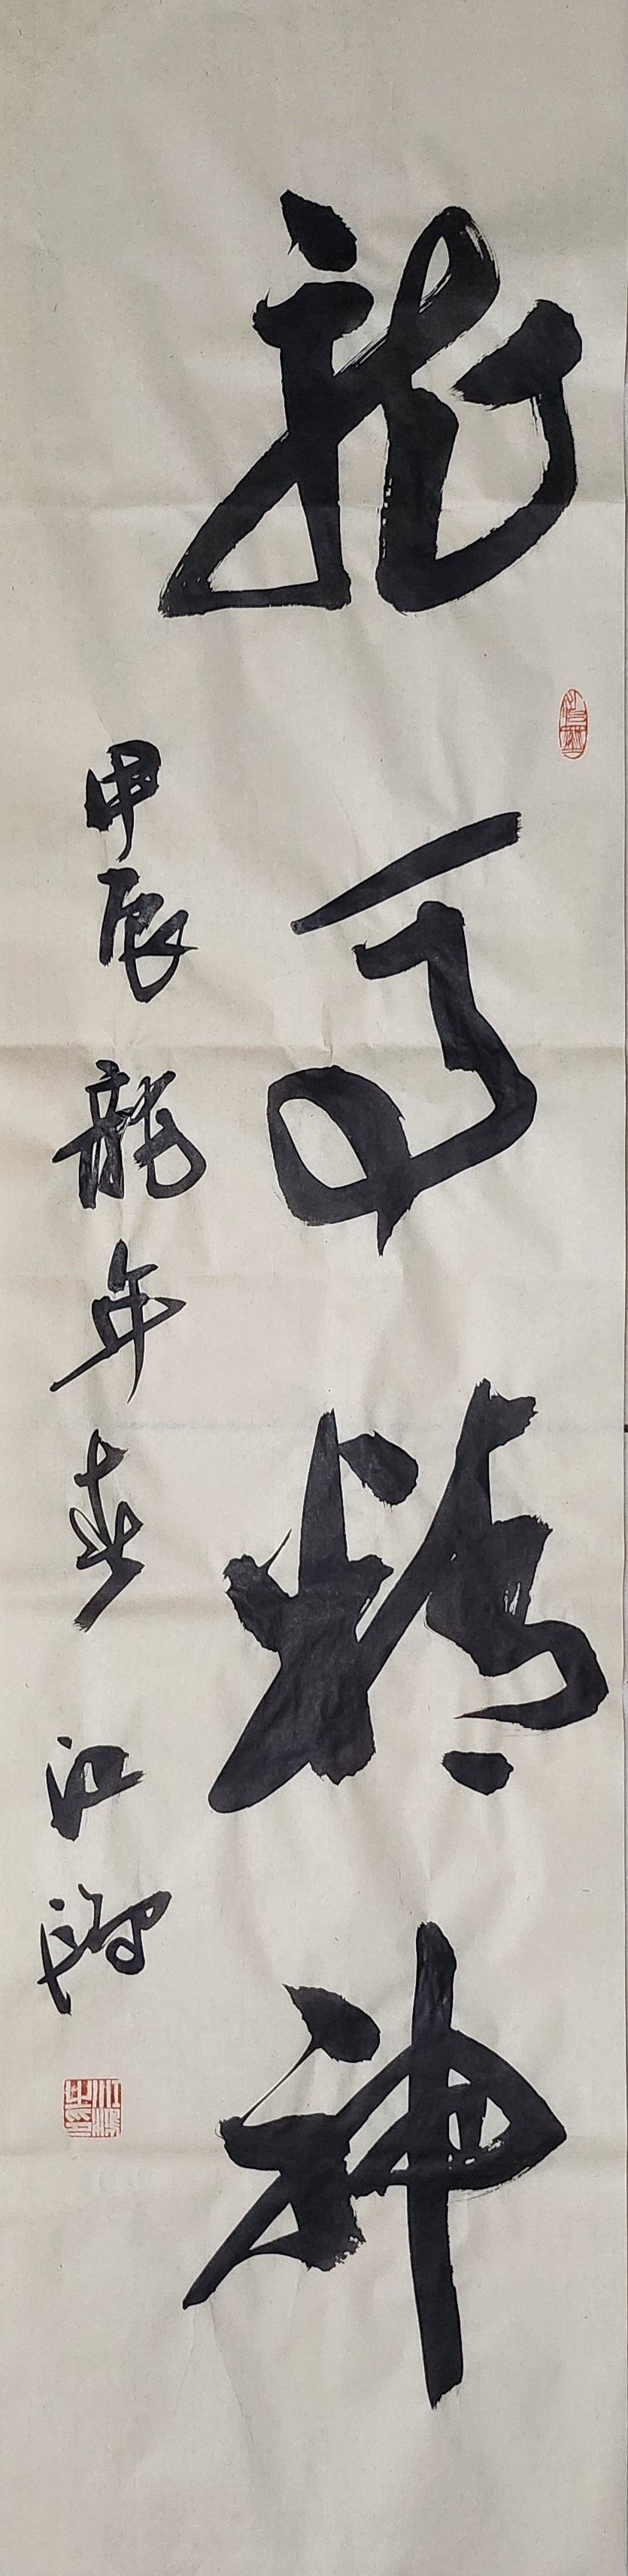 龍馬精神
甲辰龍年春 江鴻